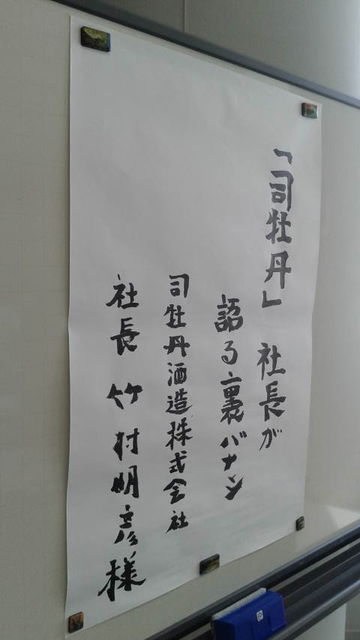 「司牡丹」社長が
語る裏バナシ
司牡丹酒造株式会社
社長 竹村明彦様